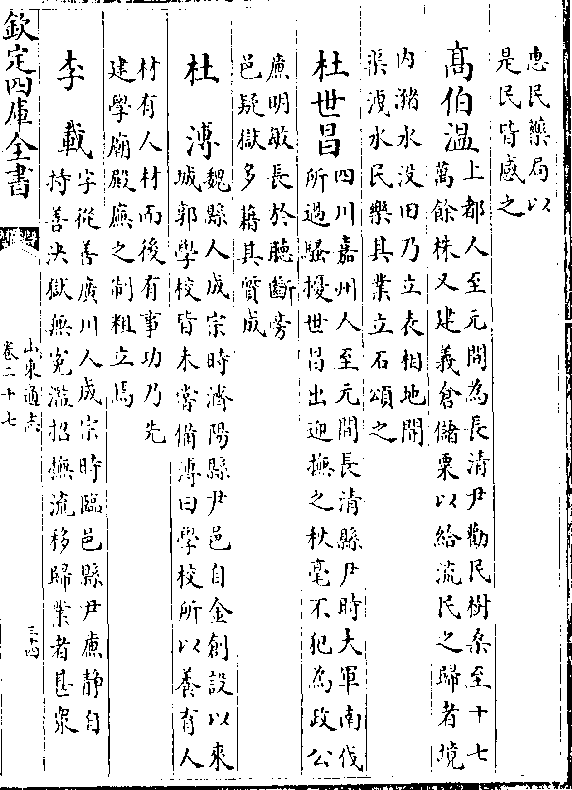 惠民藥局以
是民皆感之
髙伯温上都人至元間為長清尹勸民樹桑至十七
萬餘株又建義倉儲粟以給流民之歸者境
内潴水没田乃立表相地開
渠洩水民樂其業立石頌之
杜世昌四川嘉州人至元間長清縣尹時大軍南伐
所過騷擾世昌出迎撫之秋毫不犯為政公
亷明敏長於聽斷旁
邑疑獄多藉其質成
杜溥魏縣人成宗時濟陽縣尹邑自金創設以來
城郭學校皆未嘗備溥曰學校所以養有人
材有人材而後有事功乃先
建學廟殿廡之制粗立焉
李載字從善廣川人成宗時臨邑縣尹亷靜自
持善決獄無寃濫招撫流移歸業者甚衆
欽定四庫全書
山東通志
卷二十七
三四